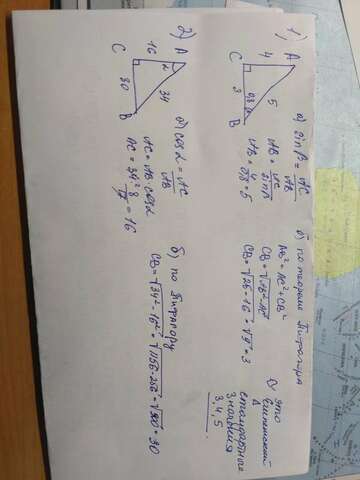 1)
A
4
C
5
3
0,8
B
а) sin β = AC/AB
AB = AC/sin β
AB = 4/0,8 = 5
б) по теореме Пифагора
AB² = AC² + CB²
CB = √AB² - AC²
CB = √25-16 = √9 = 3
это
Египетский
Δ
стандартные
значения
3, 4, 5
2)
A
16
α
C
34
30
B
а) cos α = AC/AB
AC = AB · cos α
AC = 34² · 8/17 = 16
б) по Пифагору
CB = √34² - 16² = √1156-256 = √900 = 30